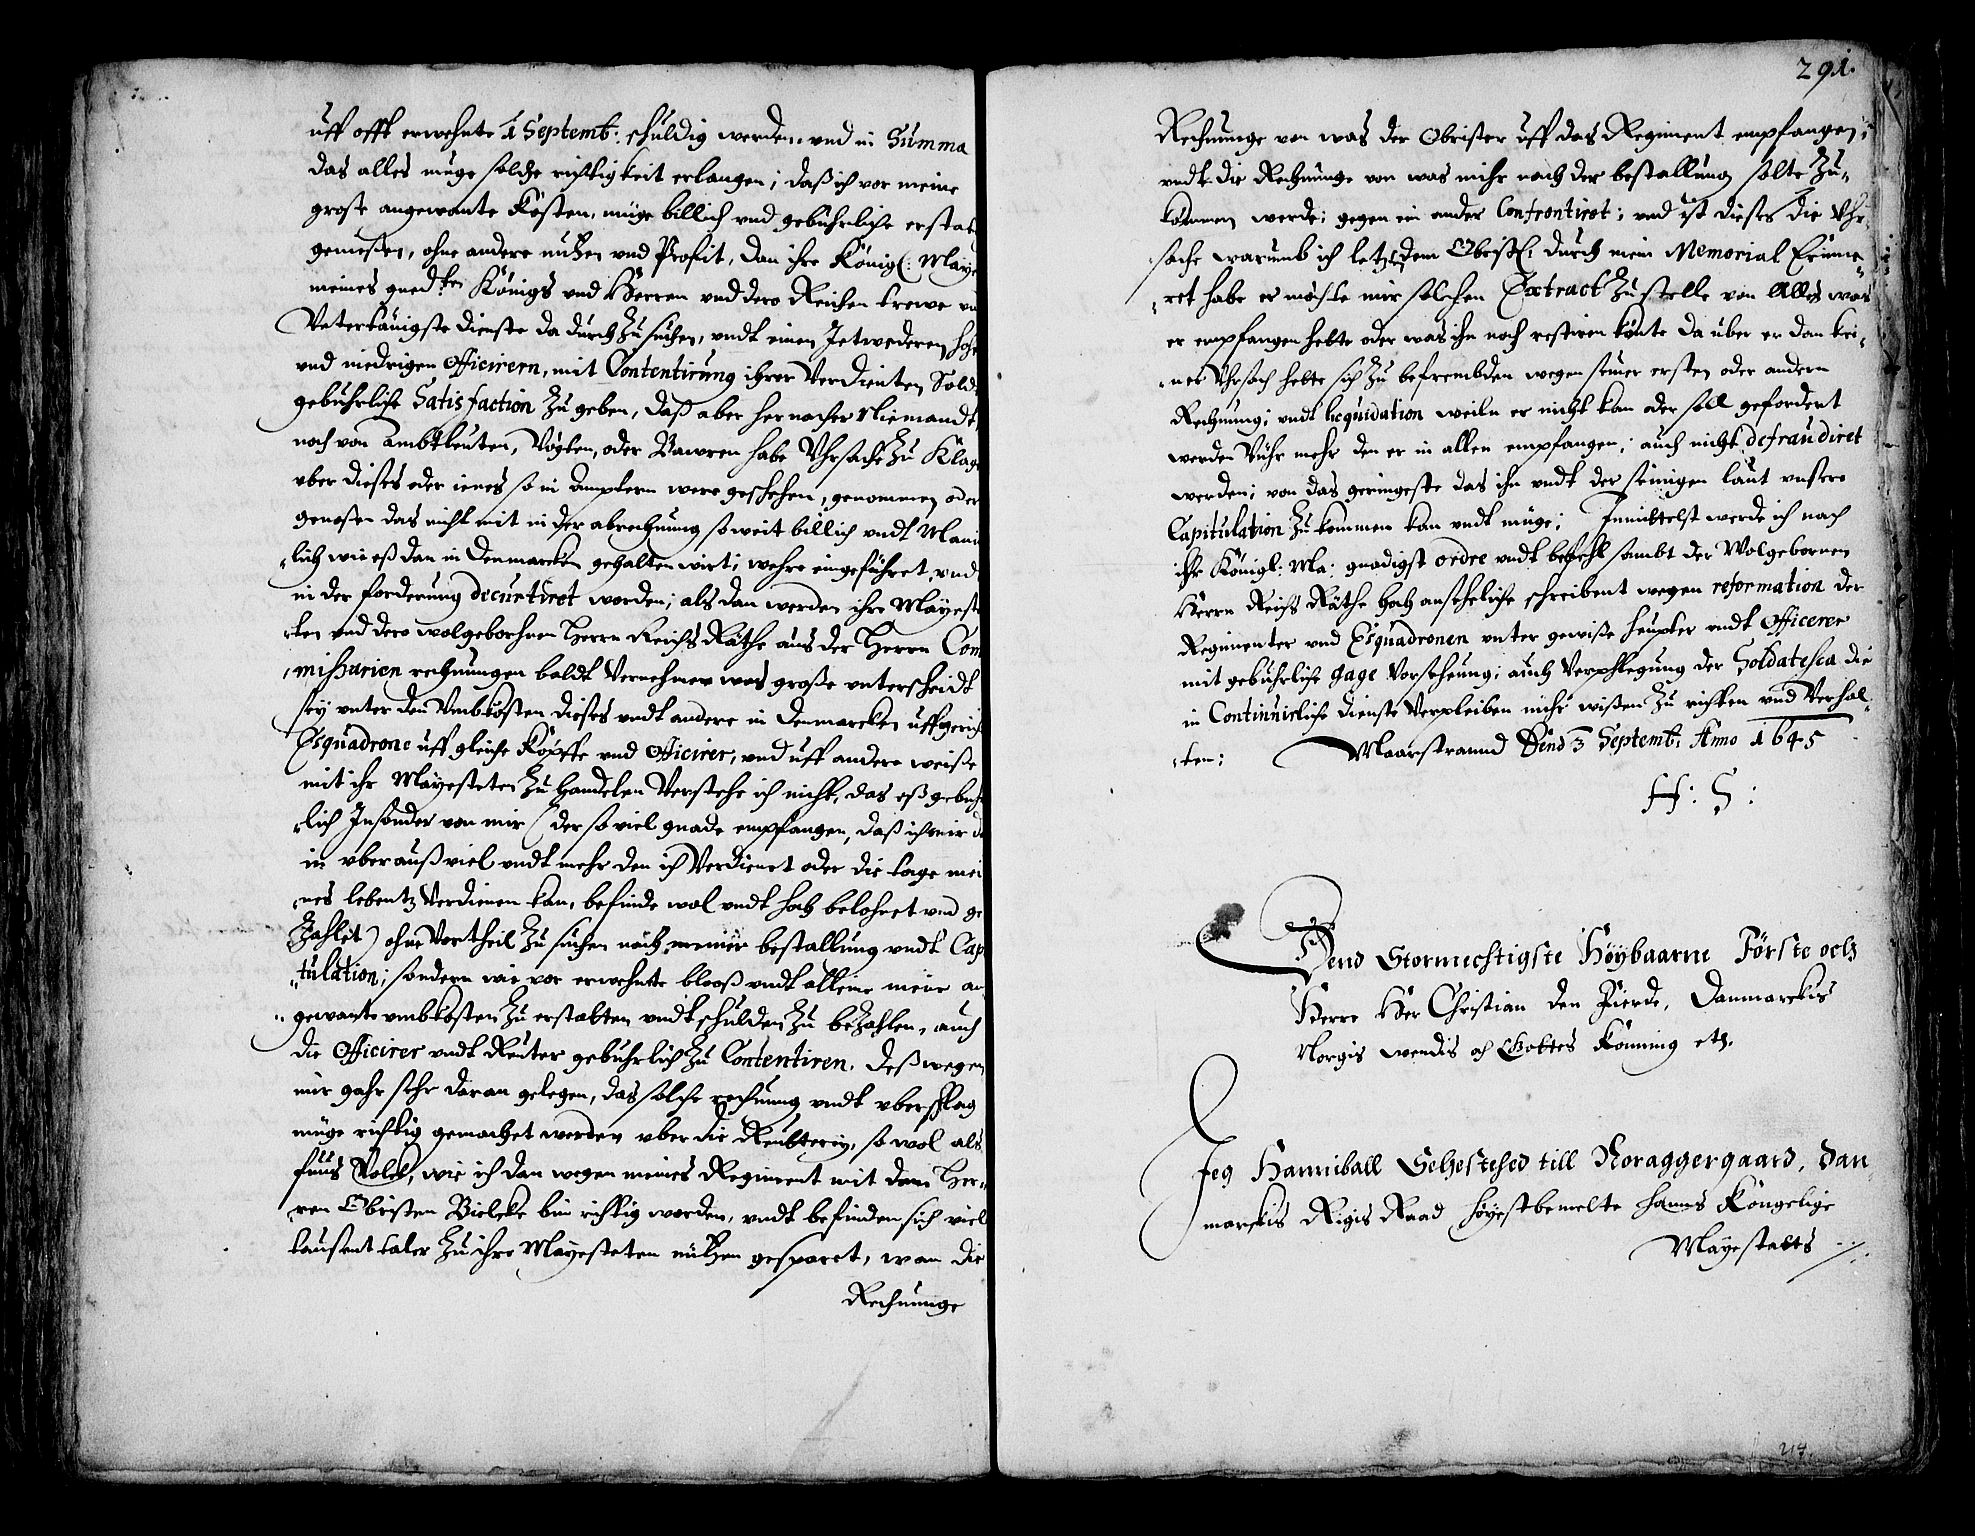 uff offt erwehnte 1 Septemb: schuldig werden, vnd in Summa
das alles müge solche richtigkeit erlangen; daß ich vor meine
große angewante Kosten, müge billich vnd gebührliche erstat
genießen, ohne andere nutzen vnd Profit, dan ihre Königl: Maye
meines gnedten Königs vnd Herren vnd dero Reichen trewe vn
Vntertänigste dienste da durch zu suchen, vndt einen Jetwederen hohe
vnd niedrigen Officirern, mit Contentirung ihrer Verdienten Sold
gebührliche Satisfaction zu geben, daß aber hernacher Niemandt
noch von Ambtleuten, Vögten, oder Bawren habe Vhrsache zu Klag
vber dieses oder ienes so in ämptern were geschehen, genommen oder
genoßen das nicht mit in der abrechnung so weit billich vndt Man
lich wie eß dan in Denmarcken gehalten wirt; wehre eingeführet, vnd
in der forderung decurtiret worden; als dan werden ihre Mayest
ten vnd dero wolgebohrnen Herrn Reichs Räthe aus der Herrn Com
missarien rechnungen baldt Vernehmen was große vnterscheidt
sey vnter den Vnkosten dieses vndt andere in Denmarcken uffgerich
Esquadrone uff gleiche Köpffe vnd Officirer, vnd uff andere weiße
mit ihr Mayesteten zu handelen Verstehe ich nicht, das eß gebüh
rlich Insonder von mir (der so viel gnade empfangen, daß ich mir d
in vberauß viel vndt mehr den ich Verdienet oder die tage mei
nes lebentz Verdienen kan, befinde wol vndt hoch belohnet vnd ge
Zahlet) ohne Vortheil zu suchen nach meiner bestallung vndt Cap
tulation; sondern wie vor erwehnte blooß vndt alleine meine an
gewante vmbkosten zu erstatten vndt schulden zu bezahlen, auch
die Officirer vndt Reuter gebührlich zu Contentiren. deßwegen
mir gahr sehr daran gelegen, das solche rechnung vndt vberschlag
müge richtig gemachet werden vber die Reutterey, so wol als
fuus Volck, wie ich dan wegen meines Regiment mit dem Her-
ren Obristen Bielcke bin richtig worden, vndt befinden sich viel
tausent taler zu ihre Mayesteten nützen gesparet, wan die
Rechnunge
291.
Rechnunge von was der Obrister uff das Regiment empfangen;
vndt die Rechnunge von was mihr nach der bestallung solte zu-
kommen werde; gegen ein ander Confrontiret; vnd ist dieses die Vhr-
sache warumb ich letz dem Obrist: durch mein Memorial Erinne-
ret habe er möchte mir solchen Extract zu stelle von Alles was
er empfangen hette oder was ihn noch restiren könte da uber er dan kei-
nes Vhrsach hette sich zu befrembden wegen seiner ersten oder andern
Rechnung; vndt liquidation weiln er nicht kan oder soll gefordert
werden Vühr mehr den er in allen empfangen; auch nicht defraudiret
werden; von das geringeste das ihn vndt der seinigen laut vnsere
Capitulation zu kommen kan vndt müge; Inmittelst werde ich nach
ihr Königl: Ma: gnädigst ordre vndt befehl sambt der Wolgebornen
Herrn Reichs Räthe hoch ansehliche schreibent wegen reformation der
Regimenter vnd Esquadronen vnter gewiße heupter vndt Officerer
mit gebührliche gage Vorsehung; auch Verpflegung der Soldatesca die
in Continuirliche dienste Verpleiben mihr wißen zu richten vnd Verhal-
ten; Maarstrannd Dend 3 Septemb: Anno 1645
H: S:
Dend Stormechtigste Höybaarne Förste och
Herre Her Christian den Fierde, Danmarckis
Norgis wendis och Gottes Konning etz.
Jeg Hanniball Sehestehed till Noraggergaard, Dan-
marckis Rigis Raad høyestbemelte hanns Kongelige
Mayestatts ./.
214.